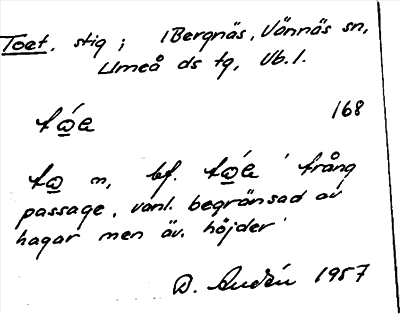 Toet, stig; i Bergnäs, Vännäs sn,
Umeå ds tg, Vb.l.
168
tώ̲a
tω̲ n, bf. tώ̲a 'trång
passage, vanl. begränsad av
hagar men äv. höjder'
D. 1957